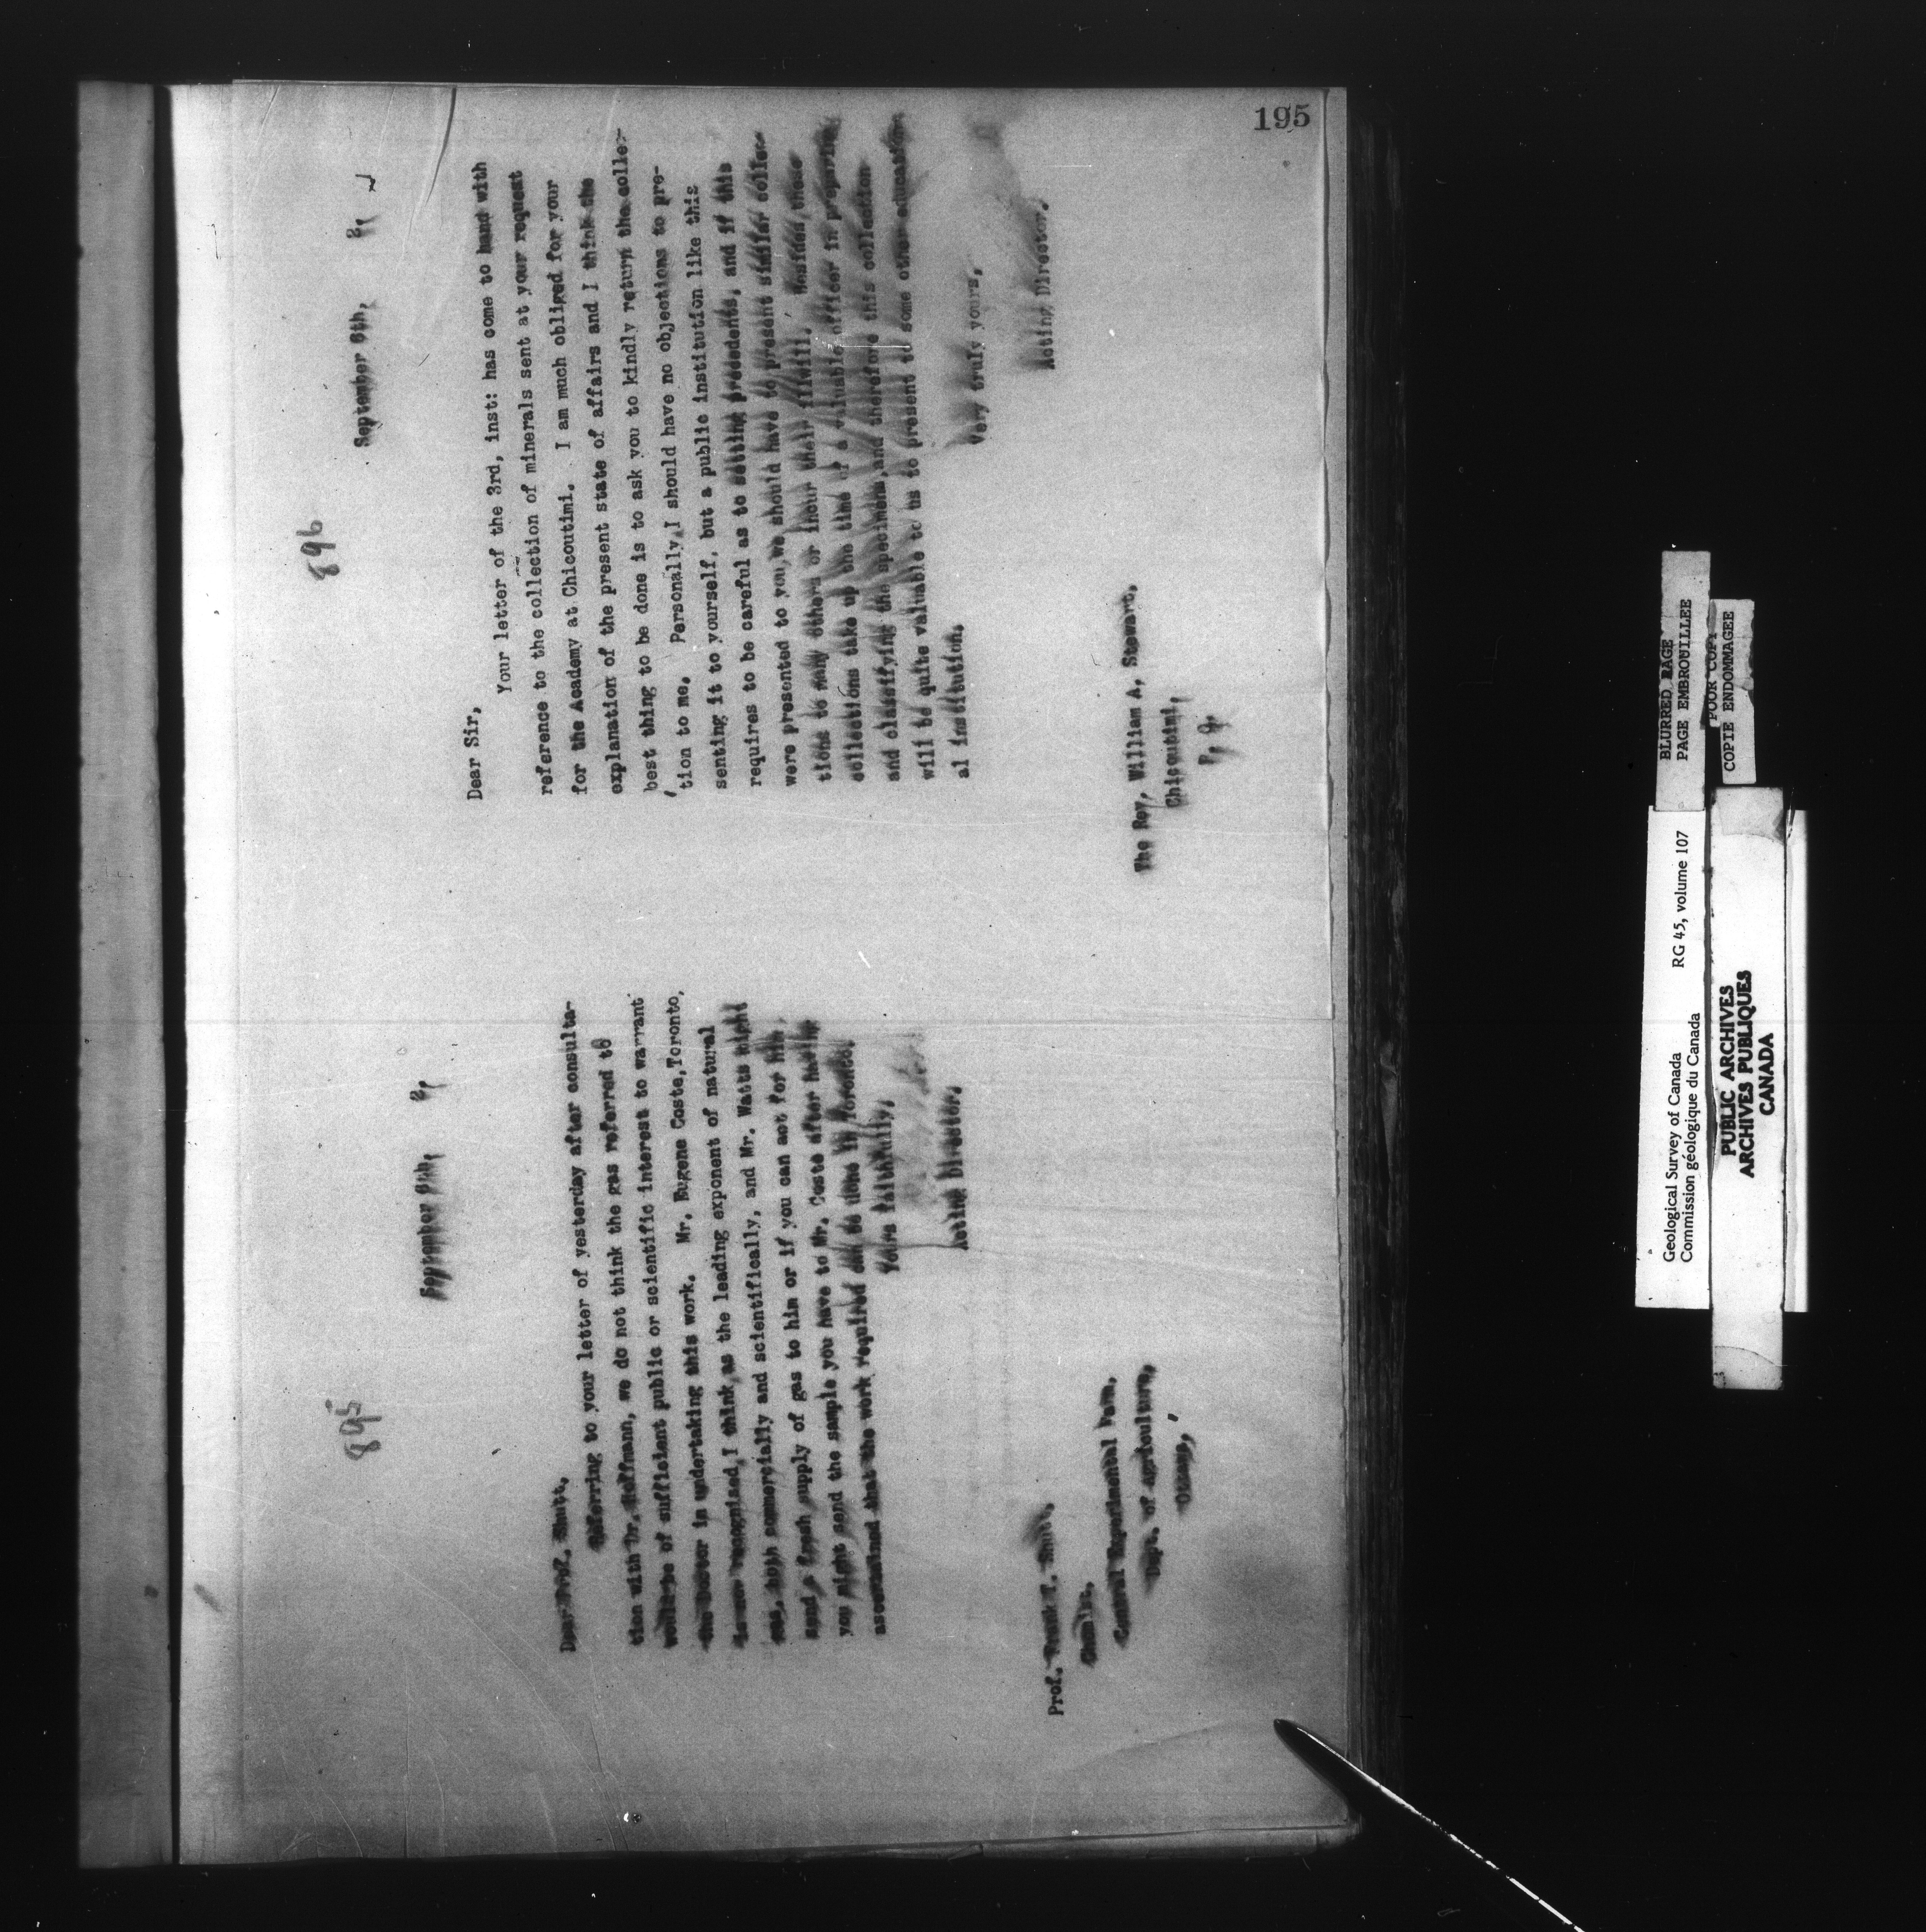 195
895
September 8th,
Dear Prof. Shutt,
Referring to your letter of yesterday after consulta-
tion with Dr. Hoffmann, we do not think the gas referred to
would be of sufficient public or scientific interest to warrant
the Survey in undertaking this work. Mr. Eugene Coste, Toronto,
is recognised, I think, as the leading exponent of natural
gas, both commercially and scientifically, and Mr. Watts might
send a fresh supply of gas to him or if you can act for him,
you might send the sample you have to Mr. Coste after
ascertained that the work required can be done in Toronto.
Yours faithfully,
Acting Director.
Prof. Frank T. Shutt,
Chemist,
Central Experimental Farm,
Dept. of Agriculture,
Ottawa,
896
September 6th,
Dear Sir,
Your letter of the 3rd, inst: has come to hand with
reference to the collection of minerals sent at your request
for the Academy at Chicoutimi. I am much obliged for your
explanation of the present state of affairs and I think the
best thing to be done is to ask you to kindly return the collec-
tion to me. Personally, I should have no objections to pre-
senting it to yourself, but a public institution like this
requires to be careful as to setting precedents, and if this
were presented to you, we should have to present similar collec-
tions to many others or incur their illwill. Besides, these
collections take up the time of a valuable officer in preparing
and classifying the specimens, and therefore this collection
will be quite valuable to us to present to some other education-
al institution.
Very truly yours,
Acting Director.
The Rev, William A, Stewart,
Chicoutimi,
P, Q.
BLURRED PAGE
PAGE EMBROUILLEE
POOR COPY
COPIE ENDOMMAGEE
Geological Survey of Canada
Commission géologique du Canada
RG 45, volume 107
PUBLIC ARCHIVES
ARCHIVES PUBLIQUES
CANADA